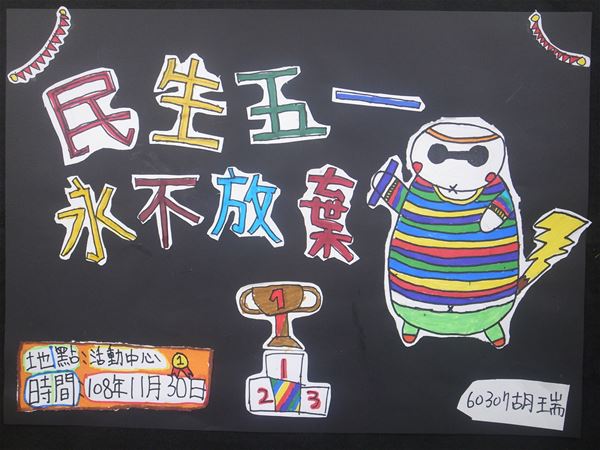 民生五一
永不放棄
地點:活動中心
1
時間108年11月30日
1
1
2 3
60307胡瑞